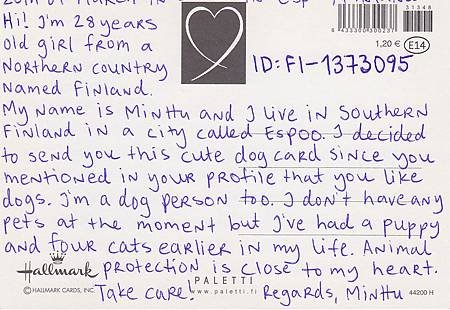 31348
6 433300 300237
1,20 € E14
Hi! I'm 28 years
old girl from a
Northern country
named Finland.
ID: FI-1373095
My name is Minttu and I live in Southern
Finland in a city called Espoo. I decided
to send you this cute dog card since you
mentioned in your profile that you like
dogs. I'm a dog person too. I don't have any
pets at the moment but I've had a puppy
and four cats earlier in my life. Animal
protection is close to my heart.
Take care! Regards, Minttu
Hallmark
© HALLMARK CARDS, INC.
PALETTI
www.paletti.fi
44200 H